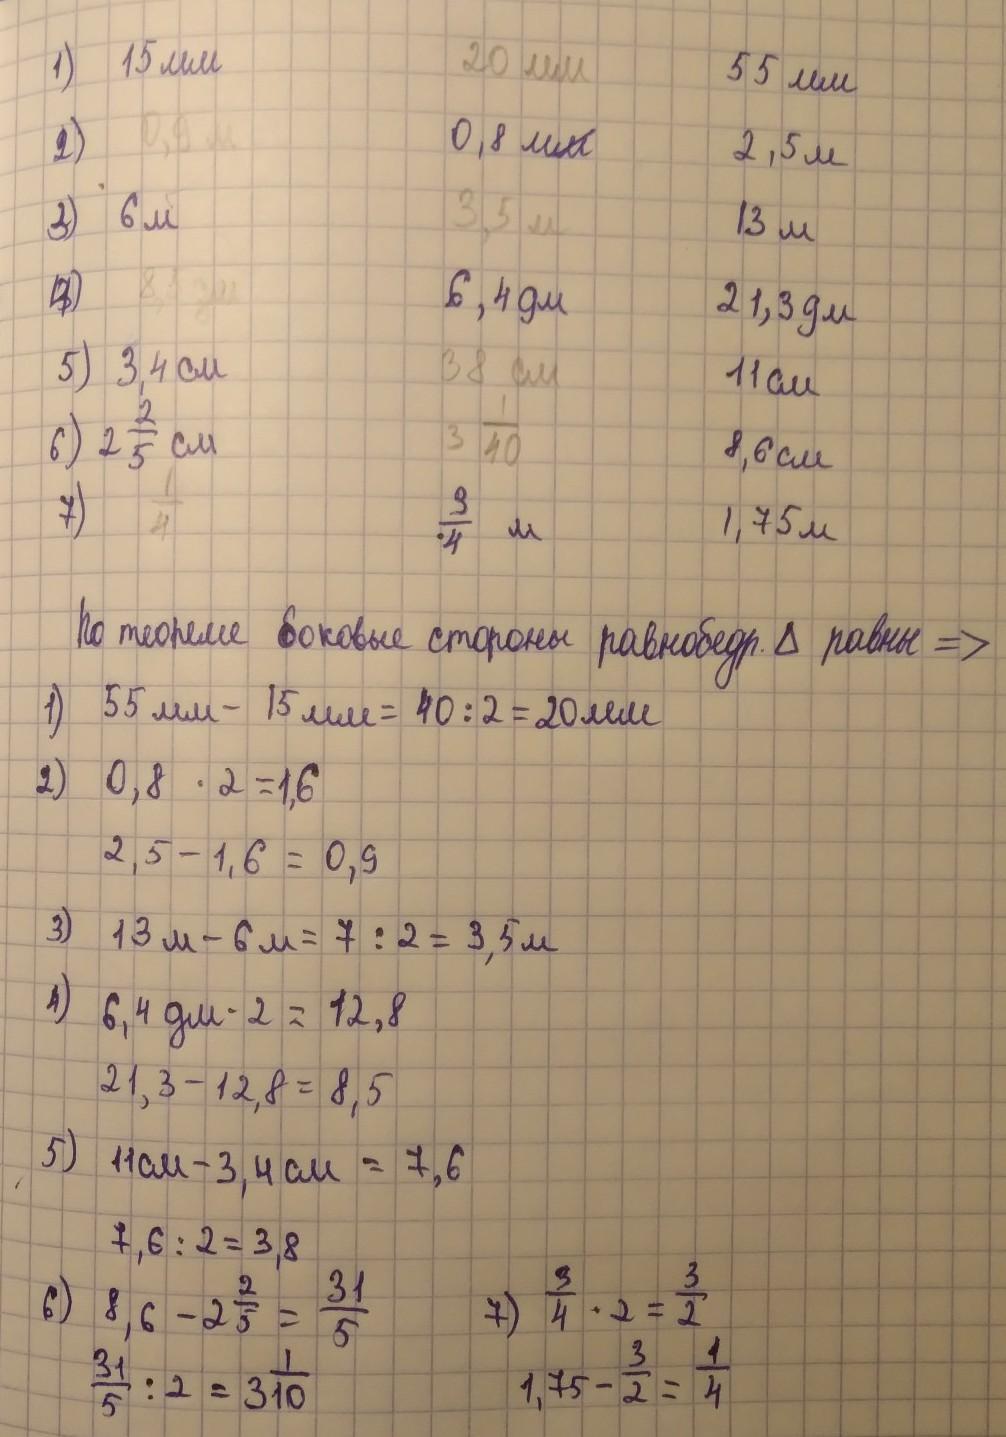 1) 15мм 20 мм 55 мм
2) 0,9 м 0,8 мм 2,5м
3) 6м 3,5 м 13 м
4) 8,5 дм 6,4дм 21,3дм
5) 3,4 см 38 см 11см
6) 2 2/5 см 3 1/40 8,6см
7) 1/4 3/4 м 1,75м
По теореме боковые стороны равнобедр. Δ равны =>
1) 55мм - 15мм = 40 : 2 = 20мм
2) 0,8 · 2 = 1,6
2,5 - 1,6 = 0,9
3) 13м - 6м = 7 : 2 = 3,5м
4) 6,4 дм · 2 = 12,8
21,3 - 12,8 = 8,5
5) 11см - 3,4см = 7,6
7,6 : 2 = 3,8
6) 8,6 - 2 2/5 = 31/5 7) 3/4 · 2 = 3/2
31/5 : 2 = 3 1/10 1,75 - 3/2 = 1/4